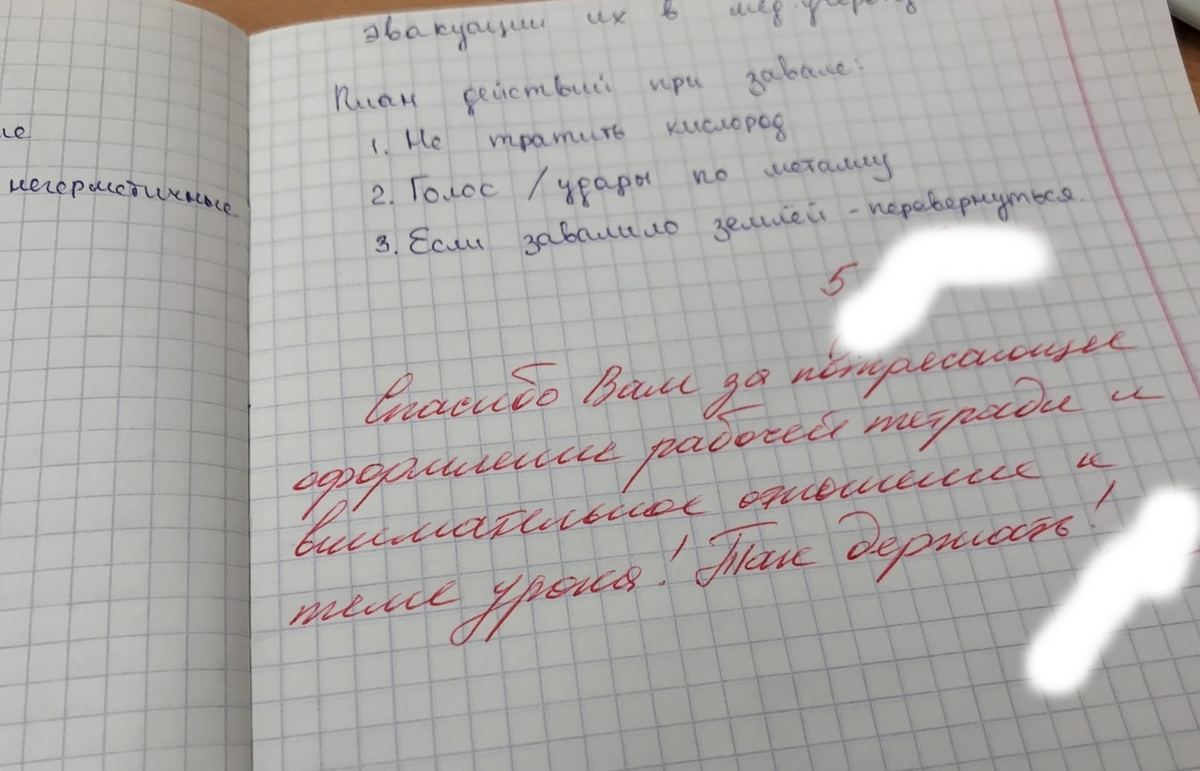 ие
негерметичные
эвакуации их в мед.учреж
План действий при завале:
1. Не тратить кислород
2. Голос / удары по металлу
3. Если завалило землёй - перевернуться.
5
Спасибо Вам за потресающее
оформление рабочей тетради и
внимательное отношение к
теме урока! Так держать!